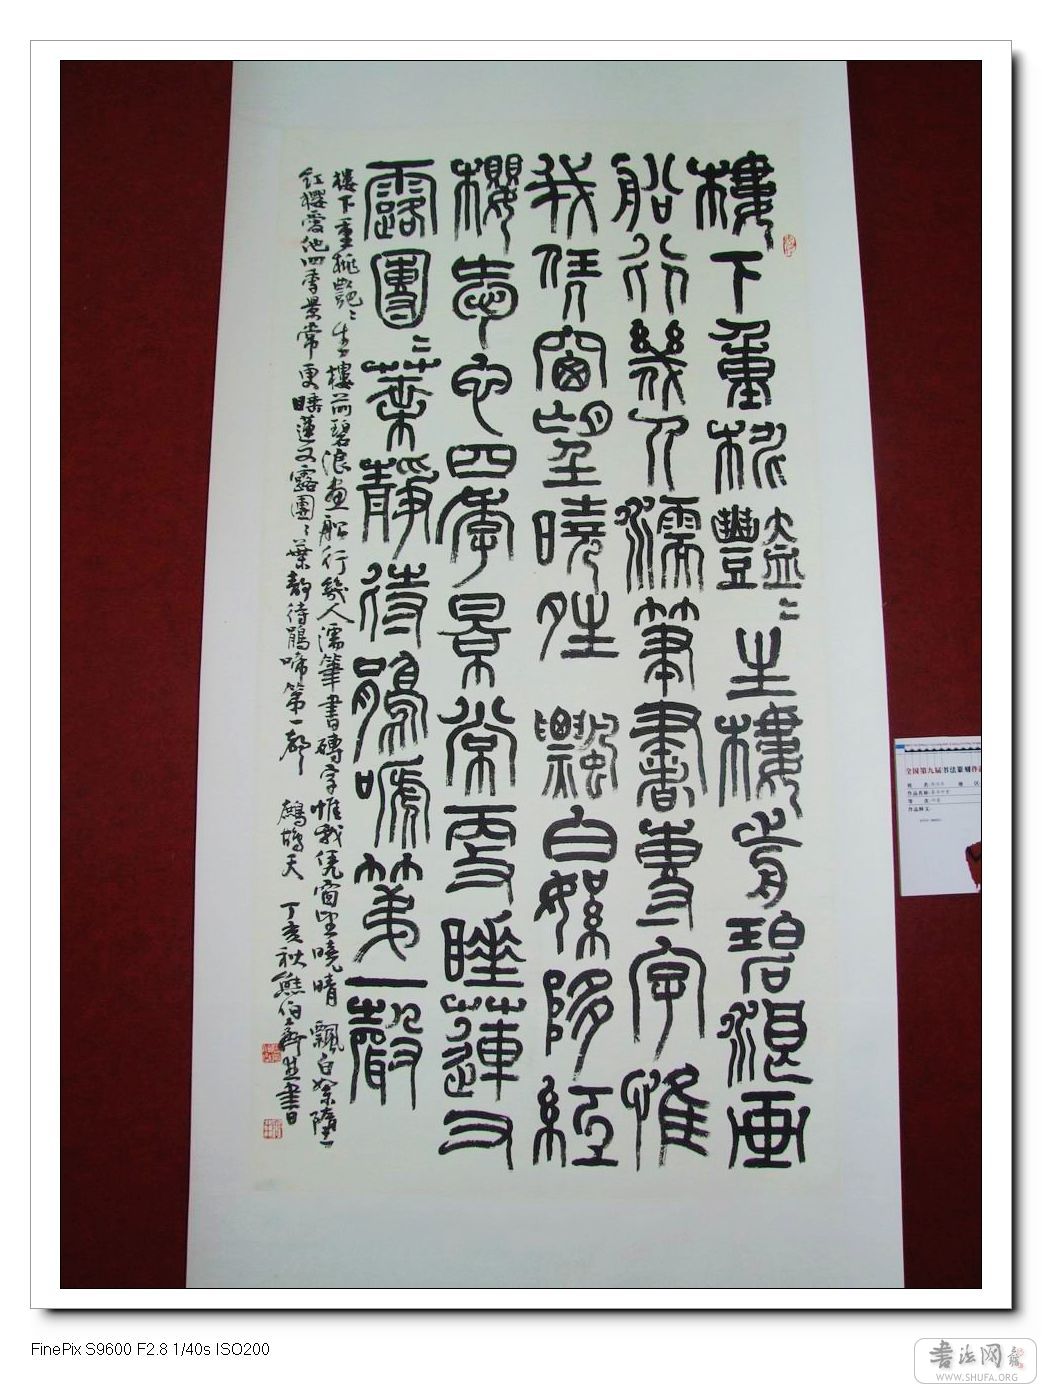 樓下重桃艷艷生樓前碧浪畫
船行幾人濡筆書專字惟
我凭窗望曉晴飄白絮墮紅
櫻愛他四季景常更睡蓮又
露團團葉靜待鵑啼第一聲
樓下重桃艷艷生樓前碧浪畫船行幾人濡筆書磚字惟我凭窗望曉晴飄白絮墮
紅櫻愛他四季景常更睡蓮又露團團葉靜待鵑啼第一聲 鷓鴣天 丁亥秋熊伯齊并書
全国第九届书法篆刻作品
FinePix S9600 F2.8 1/40s ISO200
書法网
WWW.SHUFA.ORG